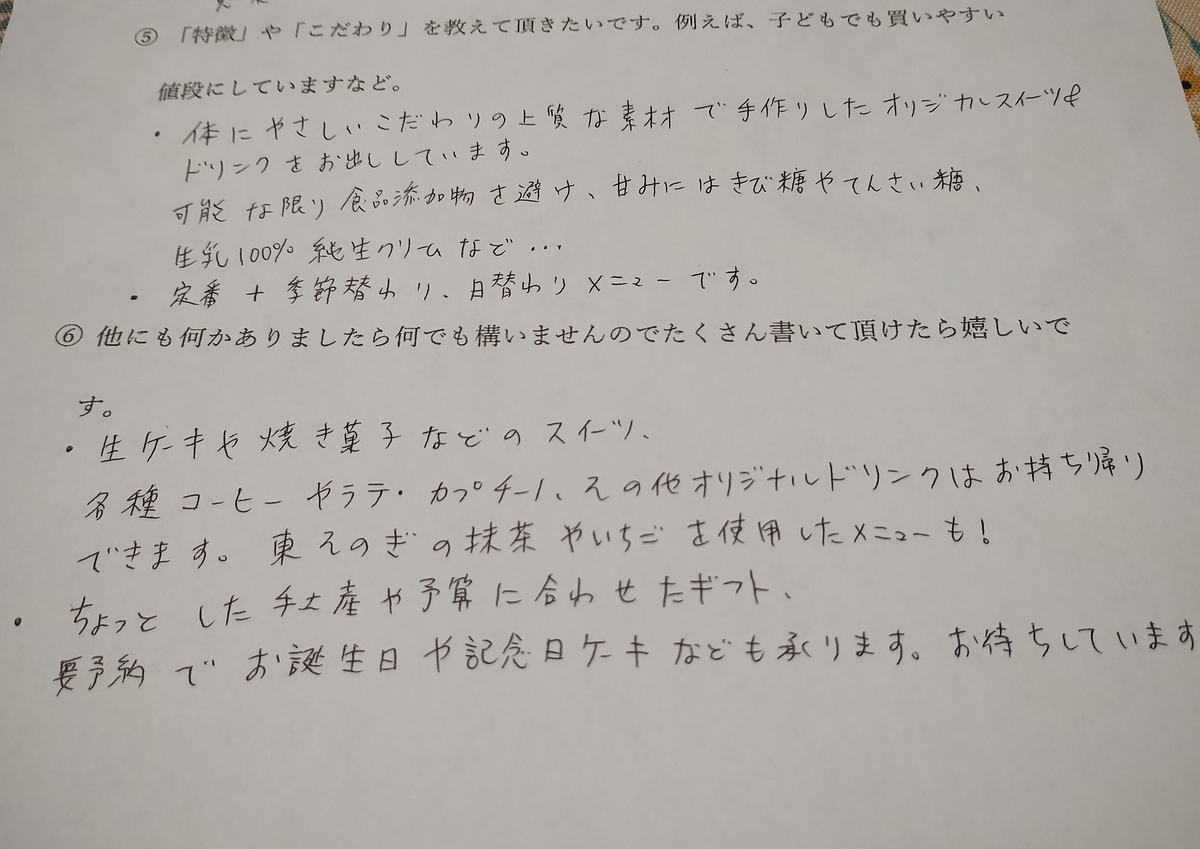 ⑤ 「特徴」や「こだわり」を教えて頂きたいです。例えば、子どもでも買いやすい
値段にしていますなど。
・体にやさしいこだわりの上質な素材で手作りしたオリジナルスイーツ&
ドリンクをお出ししています。
可能な限り食品添加物を避け、甘みにはきび糖やてんさい糖、
生乳100% 純生クリームなど…
・定番+季節替わり、日替わりメニューです。
⑥ 他にも何かありましたら何でも構いませんのでたくさん書いて頂けたら嬉しいで
す。
・生ケーキや焼き菓子などのスイーツ、
各種コーヒーやラテ・カプチーノ、その他オリジナルドリンクはお持ち帰り
できます。東そのぎの抹茶やいちごを使用したメニューも!
・ちょっとした手土産や予算に合わせたギフト、
要予約でお誕生日や記念日ケーキなども承ります。お待ちしています